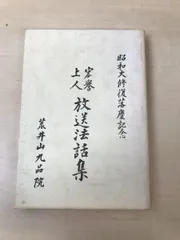 昭和大修復落慶記念
宏誉
上人
放送法話集
荒井山九品院